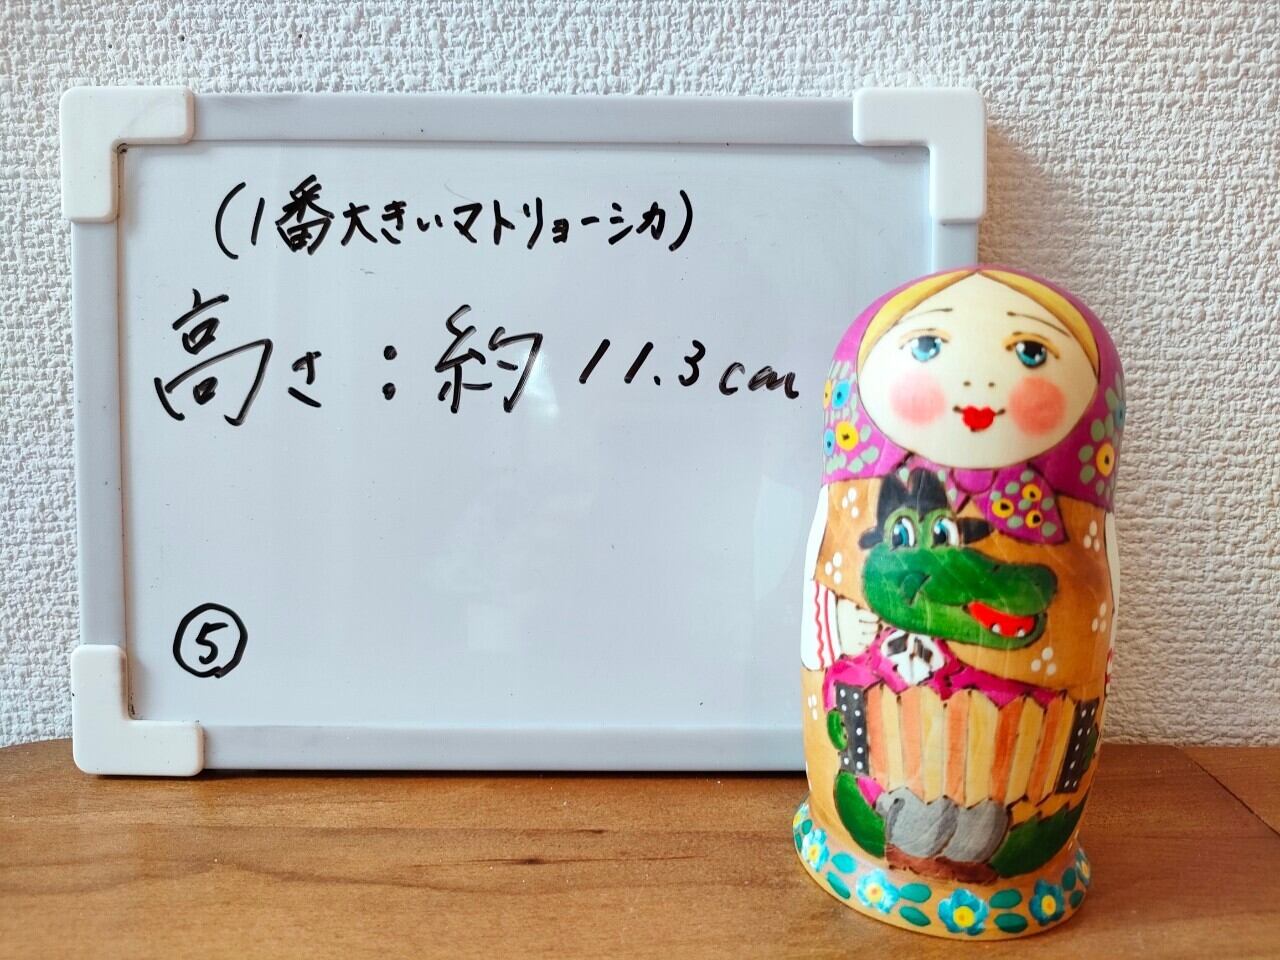 (1番大きいマトリョーシカ)
高さ:約11.3cm
⑤